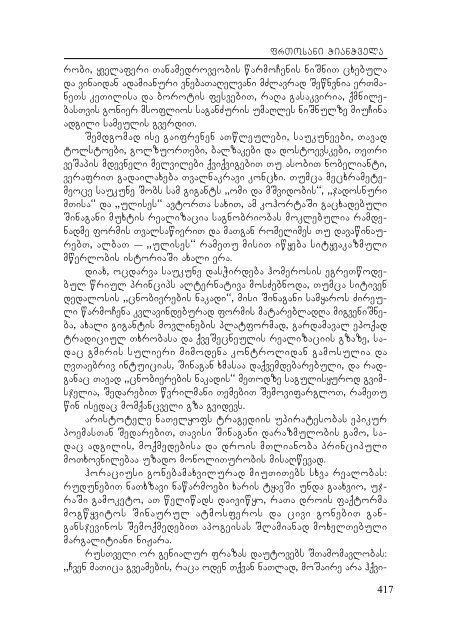 ფრთოსანი ჭიანჭველა
რობი, ყველაფერი თანამედროვეობის წარმოჩენის ნიშნით ცხებულა
და ვინაიდან ადამიანური ვნებათაღელვანი მძლავრად შეწნენია ერთმა-
ნეთს კეთილისა და ბოროტის ფესვებით, რაღა გასაკვირია, ქმნილე-
ბასთვის გონიერ მსოფლიოს საგანძურის უმაღლეს ნიშნულზე მიუჩინა
ადგილი სამეულის გვერდით.
შემდგომად ისე გაიფრენენ ათწლეულები, საუკუნეები, თავად
ტოლსტოები, გოლზუორთები, ბალზაკები და დოსტოევსკები, თეთრი
ვეშაპის მდევნელი მელვილები ქვიქვიგებით თუ ასობით ნობელიანტი,
ვერაფრით გადაილახება თვალნაკრავი კონცხი. თუმცა მეცხრამეტე-
მეოცე საუკუნე შობს სამ გიგანტს „ომი და მშვიდობის“, „ჯადოსნური
მთისა“ და „ულისეს“ ავტორთა სახით, ამ კოჰორტაში გაცხადებული
შინაგანი მუხტის რეალიზაცია საგნობრიობას მოკლებულია რამდე-
ნადმე ფორმის თვალსაწიერით და მათგან რომელიმეს თუ დავაწინაუ-
რებთ, ალბათ — „ულისეს“ რამეთუ მისით იწყება სიტყვაკაზმული
მწერლობის ისტორიაში ახალი ერა.
დიახ, ოცდარვა საუკუნე დასჭირდება ჰომეროსის ეგრეთწოდე-
ბულ წრიულ პრინციპს ალტერნატივა მოსძებნოდა, თუმცა სიტივენ
დედალოსის „ცნობიერების ნაკადი“, მისი შინაგანი სამყაროს ძირეუ-
ლი წარმოჩენა კვლავინდებურად ფორმის მატარებლადღა მიგვენიშნე-
ბა, ახალი გიგანტის მოვლინების პლატფორმად, გარდამავალ ეპოქად
ტრადიციულ თხრობასა და ქვეშეცნეულის რეალიზაციის გზაზე, სა-
დაც გმირის სულიერი მიმოდენა კონტროლიდან გამოსულია და
ღვთაებრივ ინტუიციას, შინაგან ხმასაა დაქვემდებარებული, და რად-
განაც თავად „ცნობიერების ნაკადის“ მეთოდზე საგულისყუროდ გვიმ-
სჯელია, შედარებით წვრილმანი თემებით შემოვიფარგლოთ, რამეთუ
წინ ისედაც მომქანცველი გზა გვიდევს.
არისტოტელე ნათელყოფს ტრაგედიის უპირატესობას ეპიკურ
პოემასთან შედარებით, თავისი შინაგანი დარაზმულობის გამო, სა-
დაც ადგილის, მოქმედებისა და დროის მთლიანობა პრინციპული
მოთხოვნილებაა უზადო მონოლითურობის მისაღწევად.
ჰორაციუსი გონებამახვილურად მიუთითებს სხვა რეალობას:
რუდუნებით ნათხზავი ნაწარმოები ხარის ტყავში უნდა გაახვიო, უჯ-
რაში გამოკეტო, ათ წელიწადს დაივიწყო, რათა დროის ფაქტორმა
მოგწყვიტოს შინაურულ ატმოსფეროს და ცივი გონებით გან-
განსჯევინოს შემოქმედებით აპოგეისას შლამიანად მოხელთებული
მარგალიტიანი ნიჟარა.
რუსთველი ორ გენიალურ ფრაზას დაუტოვებს შთამომავლობას:
„ჩვენ მათიცა გვეამების, რაცა ოდენ თქვან ნათლად, მოშაირე არა ჰქვი-
417